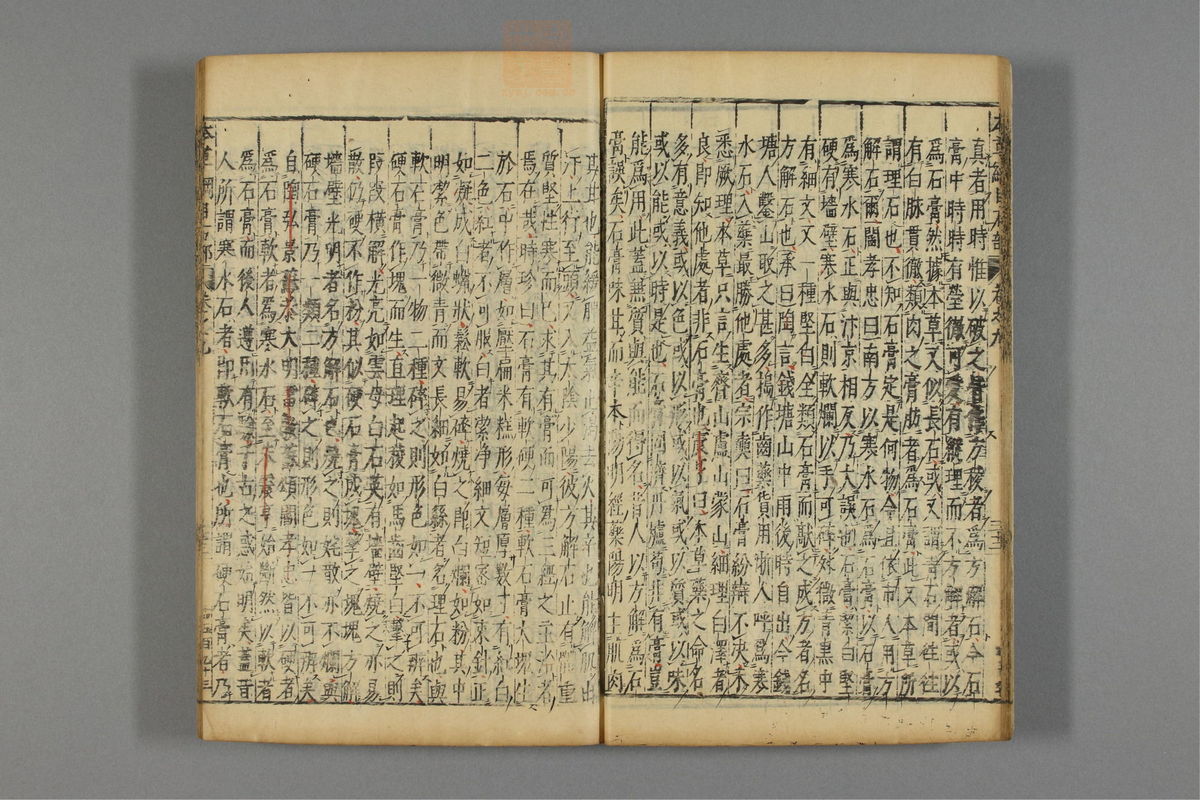 真者用時惟以破之皆作方稜者爲方解石今石
膏中時時有瑩徹可愛有縱理而不方解者或以
爲石膏然據本草又似長石或又謂青石間往往
有白脉貫徹類肉之膏肪者爲石膏此又本草所
謂理石也不知石膏定是何物今且依市人用方
解石爾閻孝忠曰南方以寒水石爲石膏以石膏
爲寒水石正與汴京相反乃大誤也石膏潔白堅
硬有墻壁寒水石則軟爛以手可碎外微青黑中
有細文又一種堅白全類石膏而敲之成方者名
方解石也承曰陶言錢塘山中雨後時自出今錢
塘人鑿山取之甚多搗作齒藥貨用浙人呼爲寒
水石入藥最勝他處者宗奭曰石膏紛辯不決未
悉厥理本草只言生齊山盧山蒙山細理白澤者
良即知他處者非石膏也震亨曰本草藥之命名
多有意義或以色或以形或以氣或以質或以味
或以能或以時是也石膏固濟丹爐苟非有膏豈
能爲用此蓋兼質與能而得名昔人以方解爲石
膏誤矣石膏味甘而辛本陽明經藥陽明主肌肉
其甘也能緩脾益氣止渴去火其辛也能解肌出
汗上行至頭又入太陰少陽彼方解石止有體重
質堅性寒而已求其有膏而可爲三經之主治者
焉在哉時珍曰石膏有軟硬二種軟石膏大塊生
於石中作層如壓扁米糕形每層厚數寸有紅白
二色紅者不可服白者潔淨細文短密如束針正
如凝成白蠟狀鬆軟易碎燒之即白爛如粉其中
明潔色帶微青而文長細如白絲者名理石也與
軟石膏乃一物二種碎之則形色如一不可辨矣
硬石膏作塊而生直理起稜如馬齒堅白擊之則
段段橫解光亮如雲母白石英有墻壁燒之亦易
散仍硬不作粉其似硬石膏成塊擊之塊塊方解
墻壁光明者名方解石也燒之則姹散亦不爛與
硬石膏乃一類二種碎之則形色如一不可辨矣
自陶弘景蘇恭大明雷斆蘇頌閻孝忠皆以硬者
爲石膏軟者爲寒水石至朱震亨始斷然以軟者
爲石膏而後人遵用有驗千古之惑始明矣蓋昔
人所謂寒水石者即軟石膏也所謂硬石膏者乃